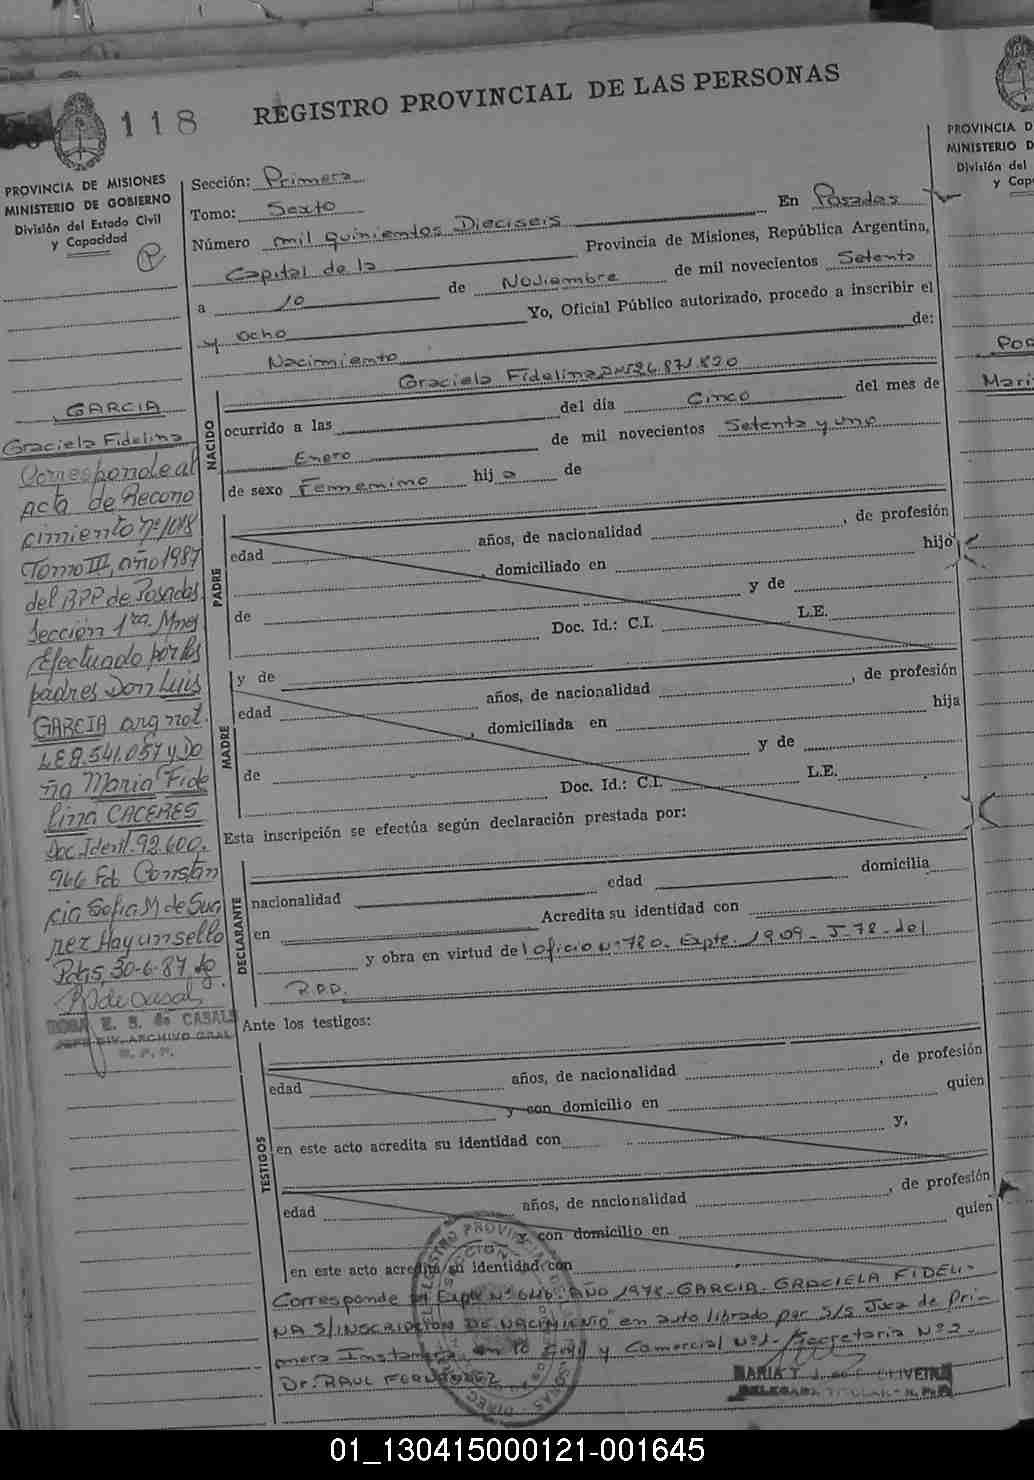 118
REGISTRO PROVINCIAL DE LAS PERSONAS
PROVINCIA DE MISIONES
MINISTERIO DE GOBIERNO
División del Estado Civil
y Capacidad
Sección: Primera
Tomo: Sexto
Número mil quinientos Dieciseis En Posadas
Capital de la Provincia de Misiones, República Argentina,
a 10 de Noviembre de mil novecientos Setenta
y ocho Yo, Oficial Público autorizado, procedo a inscribir el
Nacimiento de:
GARCIA
Graciela Fidelina
Corresponde al
acta de Recono
cimiento nº 1018
Tomo III, año 1987
del RPP de Posadas
Sección 1ra. Mnes
Efectuado por los
padres Don Luis
GARCIA arg nat.
L E 8.541.057 y Do
ña Maria Fide
lina CACERES
Doc. Ident. 92.600.
966 Fdo Constan
cia Sofia M de Sua
rez Hay un sello
Pdas, 30-6-87
R de Casals
ROSA E. S. de CASALS
JEFE DIV. ARCHIVO GRAL
R. P. P.
NACIDO
Graciela Fidelina DNI 26.871.820
ocurrido a las del día Cinco del mes de
Enero de mil novecientos Setenta y uno
de sexo Femenino hij a de
PADRE
edad años, de nacionalidad , de profesión
domiciliado en hijo
de y de
Doc. Id.: C.I. L.E.
MADRE
y de
edad años, de nacionalidad , de profesión
, domiciliada en hija
de y de
Doc. Id.: C.I. L.E.
Esta inscripción se efectúa según declaración prestada por:
DECLARANTE
nacionalidad edad domicilia
en Acredita su identidad con
y obra en virtud del oficio Nº 780. Expte. 1909-J-78-del
R.P.P.
Ante los testigos:
TESTIGOS
edad años, de nacionalidad , de profesión
y con domicilio en quien
en este acto acredita su identidad con y,
edad años, de nacionalidad , de profesión
y con domicilio en quien
en este acto acredita su identidad con
Corresponde al Expte Nº 646. AÑO 1978-GARCIA-GRACIELA FIDELI-
NA S/INSCRIPCION DE NACIMIENTO" en auto librado por S/S Juez de Pri-
mera Instancia en lo Civil y Comercial Nº1- Secretaria Nº2-
Dr. RAUL FERNANDEZ
PROVINCIA D
MINISTERIO D
División del
y Cap
Mari
01_130415000121-001645